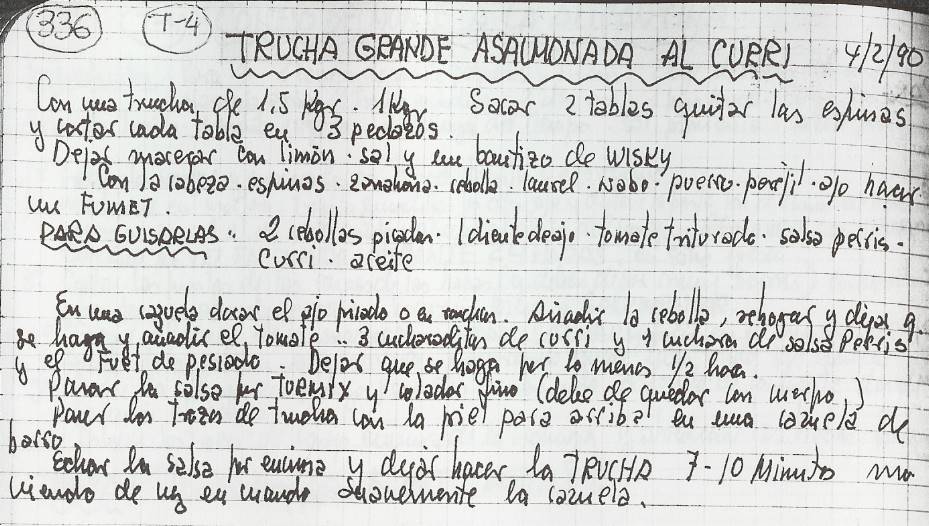 336 T-4
TRUCHA GRANDE ASALMONADA AL CURRI 4/2/90
Con una trucha de 1,5 Kgr. 1Kgr Sacar 2 tablas quitar las espinas
y cortar cada tabla en 3 pedazos.
Dejar macerar con limón. sal y un bautizo de WISKY
Con la cabeza. espinas. zanahoria. cebolla. laurel. Nabo. puerro. perejil. ajo hacer
un FUMET.
PARA GUISARLAS.. 2 cebollas picadas. 1 diente de ajo. tomate triturado. salsa perris.
Curri. aceite
En una cazuela dorar el ajo picado o en. Añadir la cebolla, rehogar y dejar q.
se haga y añadir el tomate.. 3 cucharaditas de curri y 1 cuchara de salsa Perris
y el Fuet de pescado. Dejar que se haga por lo menos 1/2 hora.
Pasar la salsa por TURMIX y colador fino (debe de quedar con cuerpo)
Poner los trozos de trucha con la piel para arriba en una cazuela de
barro
Echar la salsa por encima y dejar hacer la TRUCHA 7-10 Minutos mo
viendo de vez en cuando suavemente la cazuela.